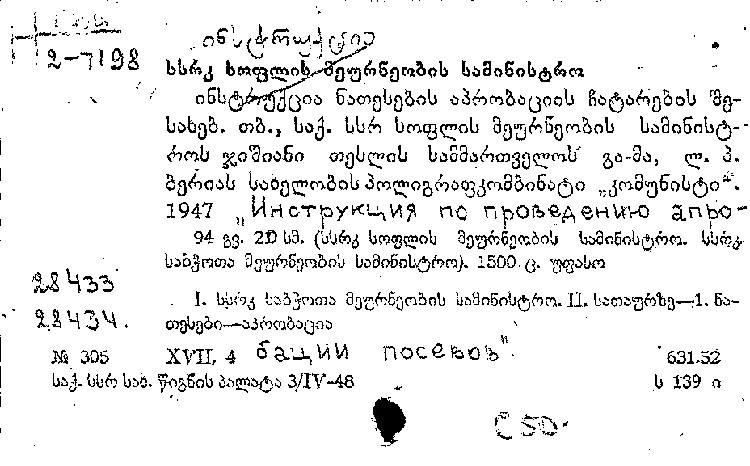 2-7198
ინსტრუქცია
სსრკ სოფლის მეურნეობის სამინისტრო
ინსტრუქცია ნათესების აპრობაციის ჩატარების შე-
სახებ. თბ., საქ. სსრ სოფლის მეურნეობის სამინისტ-
როს ჯიშიანი თესლის სამმართველოს გა-მა, ლ. პ.
ბერიას სახელობის პოლიგრაფკომბინატი „კომუნისტი“.
1947 „Инструкция по проведению апро-
94 გვ. 20 სმ. (სსრკ სოფლის მეურნეობის სამინისტრო. სსრკ
საბჭოთა მეურნეობის სამინისტრო). 1500 ც. უფასო
28433
I. სსრკ საბჭოთა მეურნეობის სამინისტრო. II. სათაურზე—1. ნა-
28434.
თესები—აპრობაცია
№ 305 XVII, 4 бации посевов" 631.52
საქ. სსრ სახ. წიგნის პალატა 3/IV-48 ს 139 ი
C 50